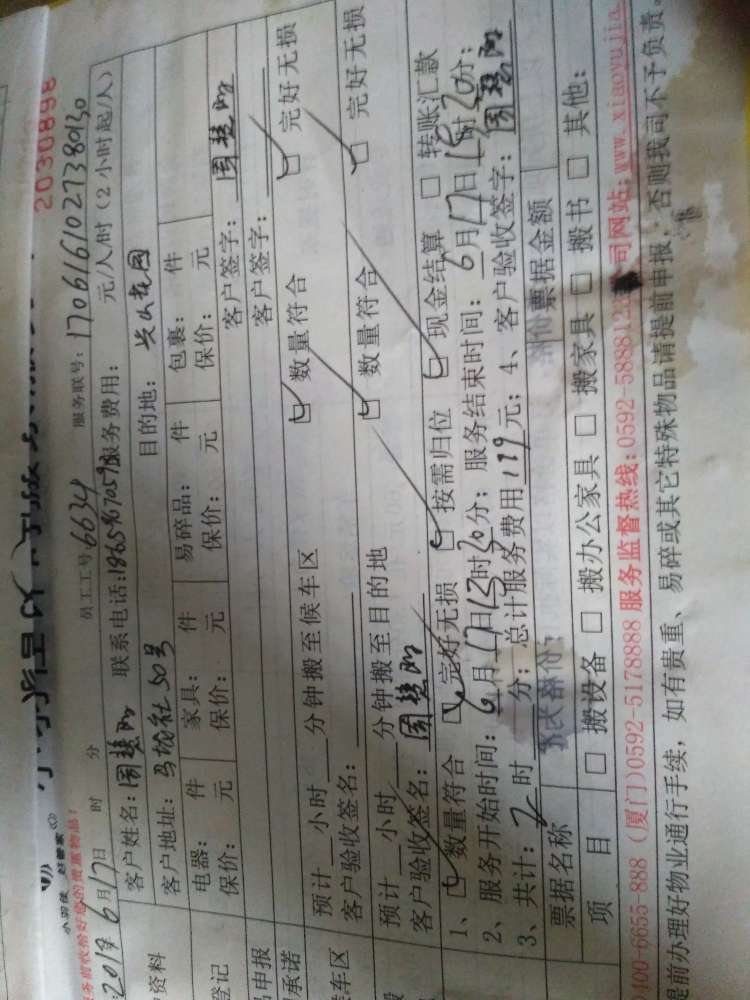 2030898
小羽佳 好管家
服务前收拾好您的贵重物品!
员工工号:6634 服务联号:170616102738030
2017 6月17日 时 分 服务费用: 元/人/时(2小时起/人)
客户姓名: 联系电话:
客户地址: 50号 目的地: 花园
电器: 件 家具: 件 易碎品: 件 包裹: 件
保价: 元 保价: 元 保价: 元 保价: 元
客户签字:
客户签字:
预计 小时 分钟搬至候车区 数量符合 完好无损
客户验收签名:
预计 小时 分钟搬至目的地 数量符合 完好无损
客户验收签名:
1、 数量符合 完好无损 按需归位 现金结算 转账汇款
2、服务开始时间:6月17日13时30分; 服务结束时间:6月17日15时30分;
3、共计:2时 分; 总计服务费用 元; 4、客户验收签字:
票据名称 票据金额
项目 搬设备 搬办公家具 搬家具 搬书 其他:
400-6655-888 (厦门)0592-5178888 服务监督热线:0592-588812 司网站:www.xiaoyujia
提前办理好物业通行手续,如有贵重、易碎或其它特殊物品请提前申报,否则我司不予负责。
资料
登记
申报
承诺
车区